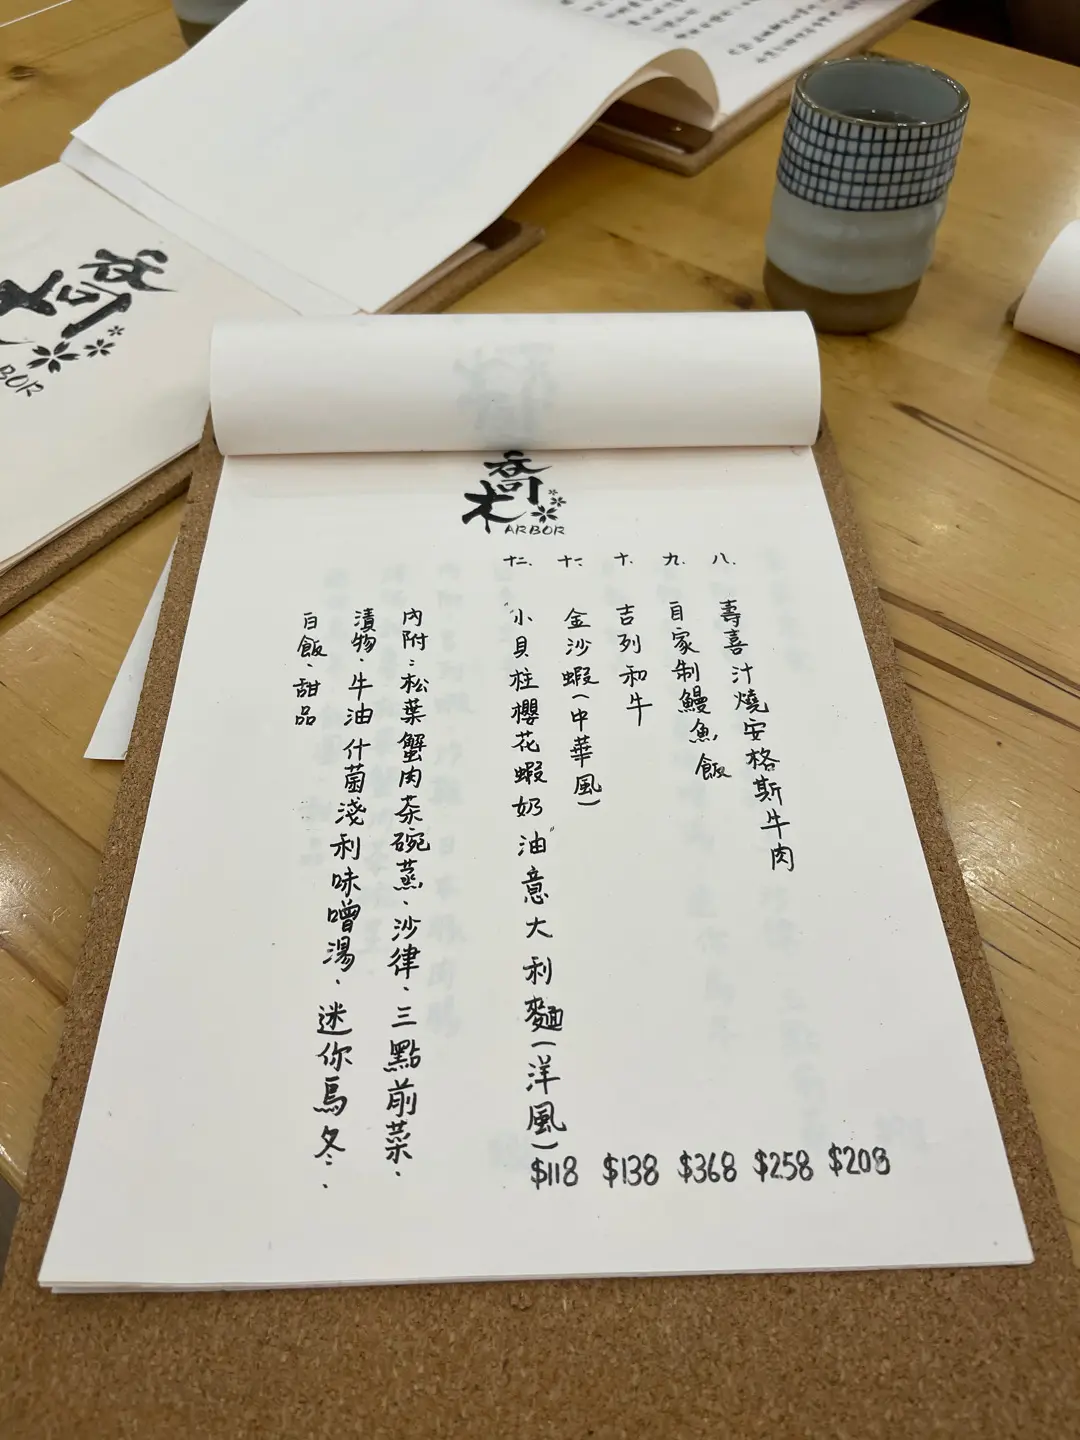 喬木
ARBOR
八. 壽喜汁燒安格斯牛肉 $208
九. 自家制鰻魚飯 $258
十. 吉列和牛 $368
十一. 金沙蝦(中華風) $138
十二. "小貝柱櫻花蝦奶油"意大利麵(洋風) $118
內附:松葉蟹肉茶碗蒸、沙律、三點前菜、
漬物、牛油什菌淺利味噌湯、迷你烏冬、
白飯、甜品
喬木
BOR